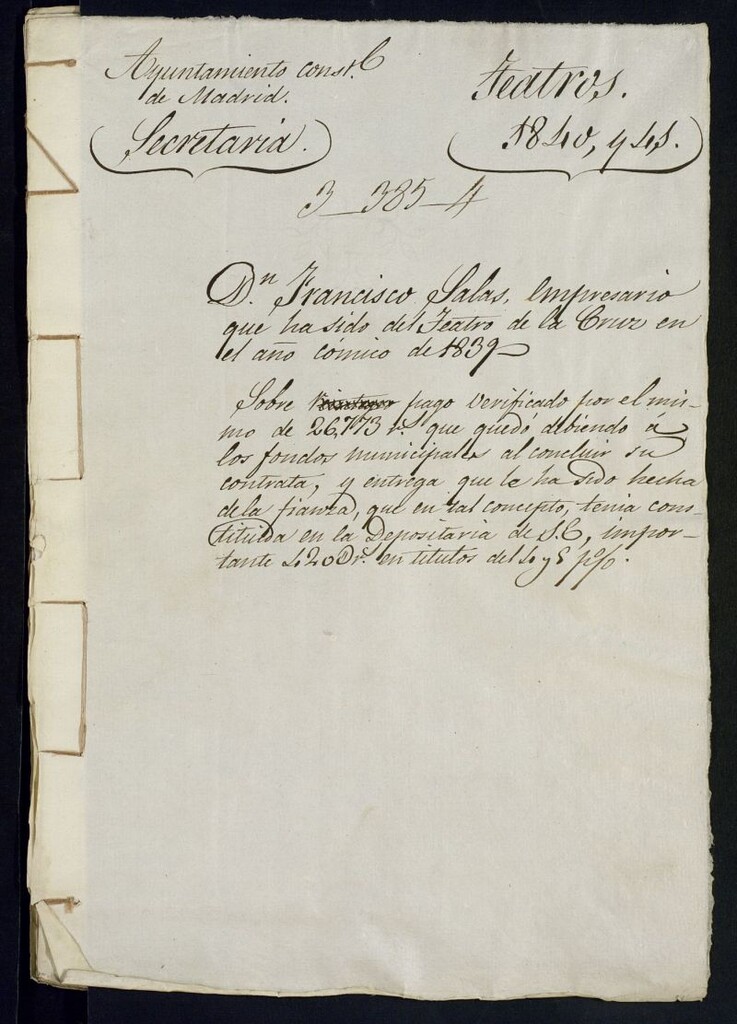 Ayuntamiento const.l
de Madrid.
Secretaria.
Teatros.
1840, y 41.
3-385-4
D.n Francisco Salas, Empresario
que ha sido del Teatro de la Cruz en
el año cómico de 1839
Sobre pago verificado por el mis-
mo de 26,773 r.s que quedó debiendo á
los fondos municipales al concluir su
contrata, y entrega que le ha sido hecha
de la fianza, que en tal concepto, tenia cons-
tituida en la Depositaria de S.E, impor-
tante r.s en titulos del 4 y 5 p%.